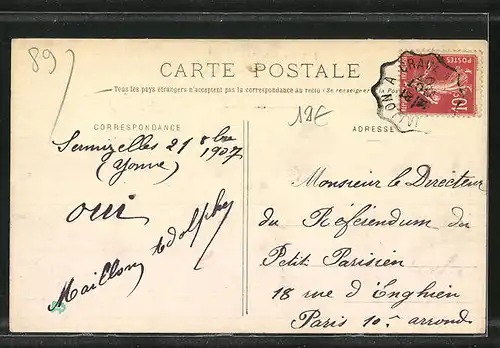 89
CARTE POSTALE
Tous les pays étrangers n'acceptent pas la correspondance au recto (Se renseigner à la Poste)
CORRESPONDANCE
12€
ADRESSE
POSTES
10
Sermizelles 21 8bre
1907
(Yonne)
oui
Maillon Adolphe
Monsieur le Directeur
du Référendum du
Petit Parisien
18 rue d'Enghien
Paris 10e arrond